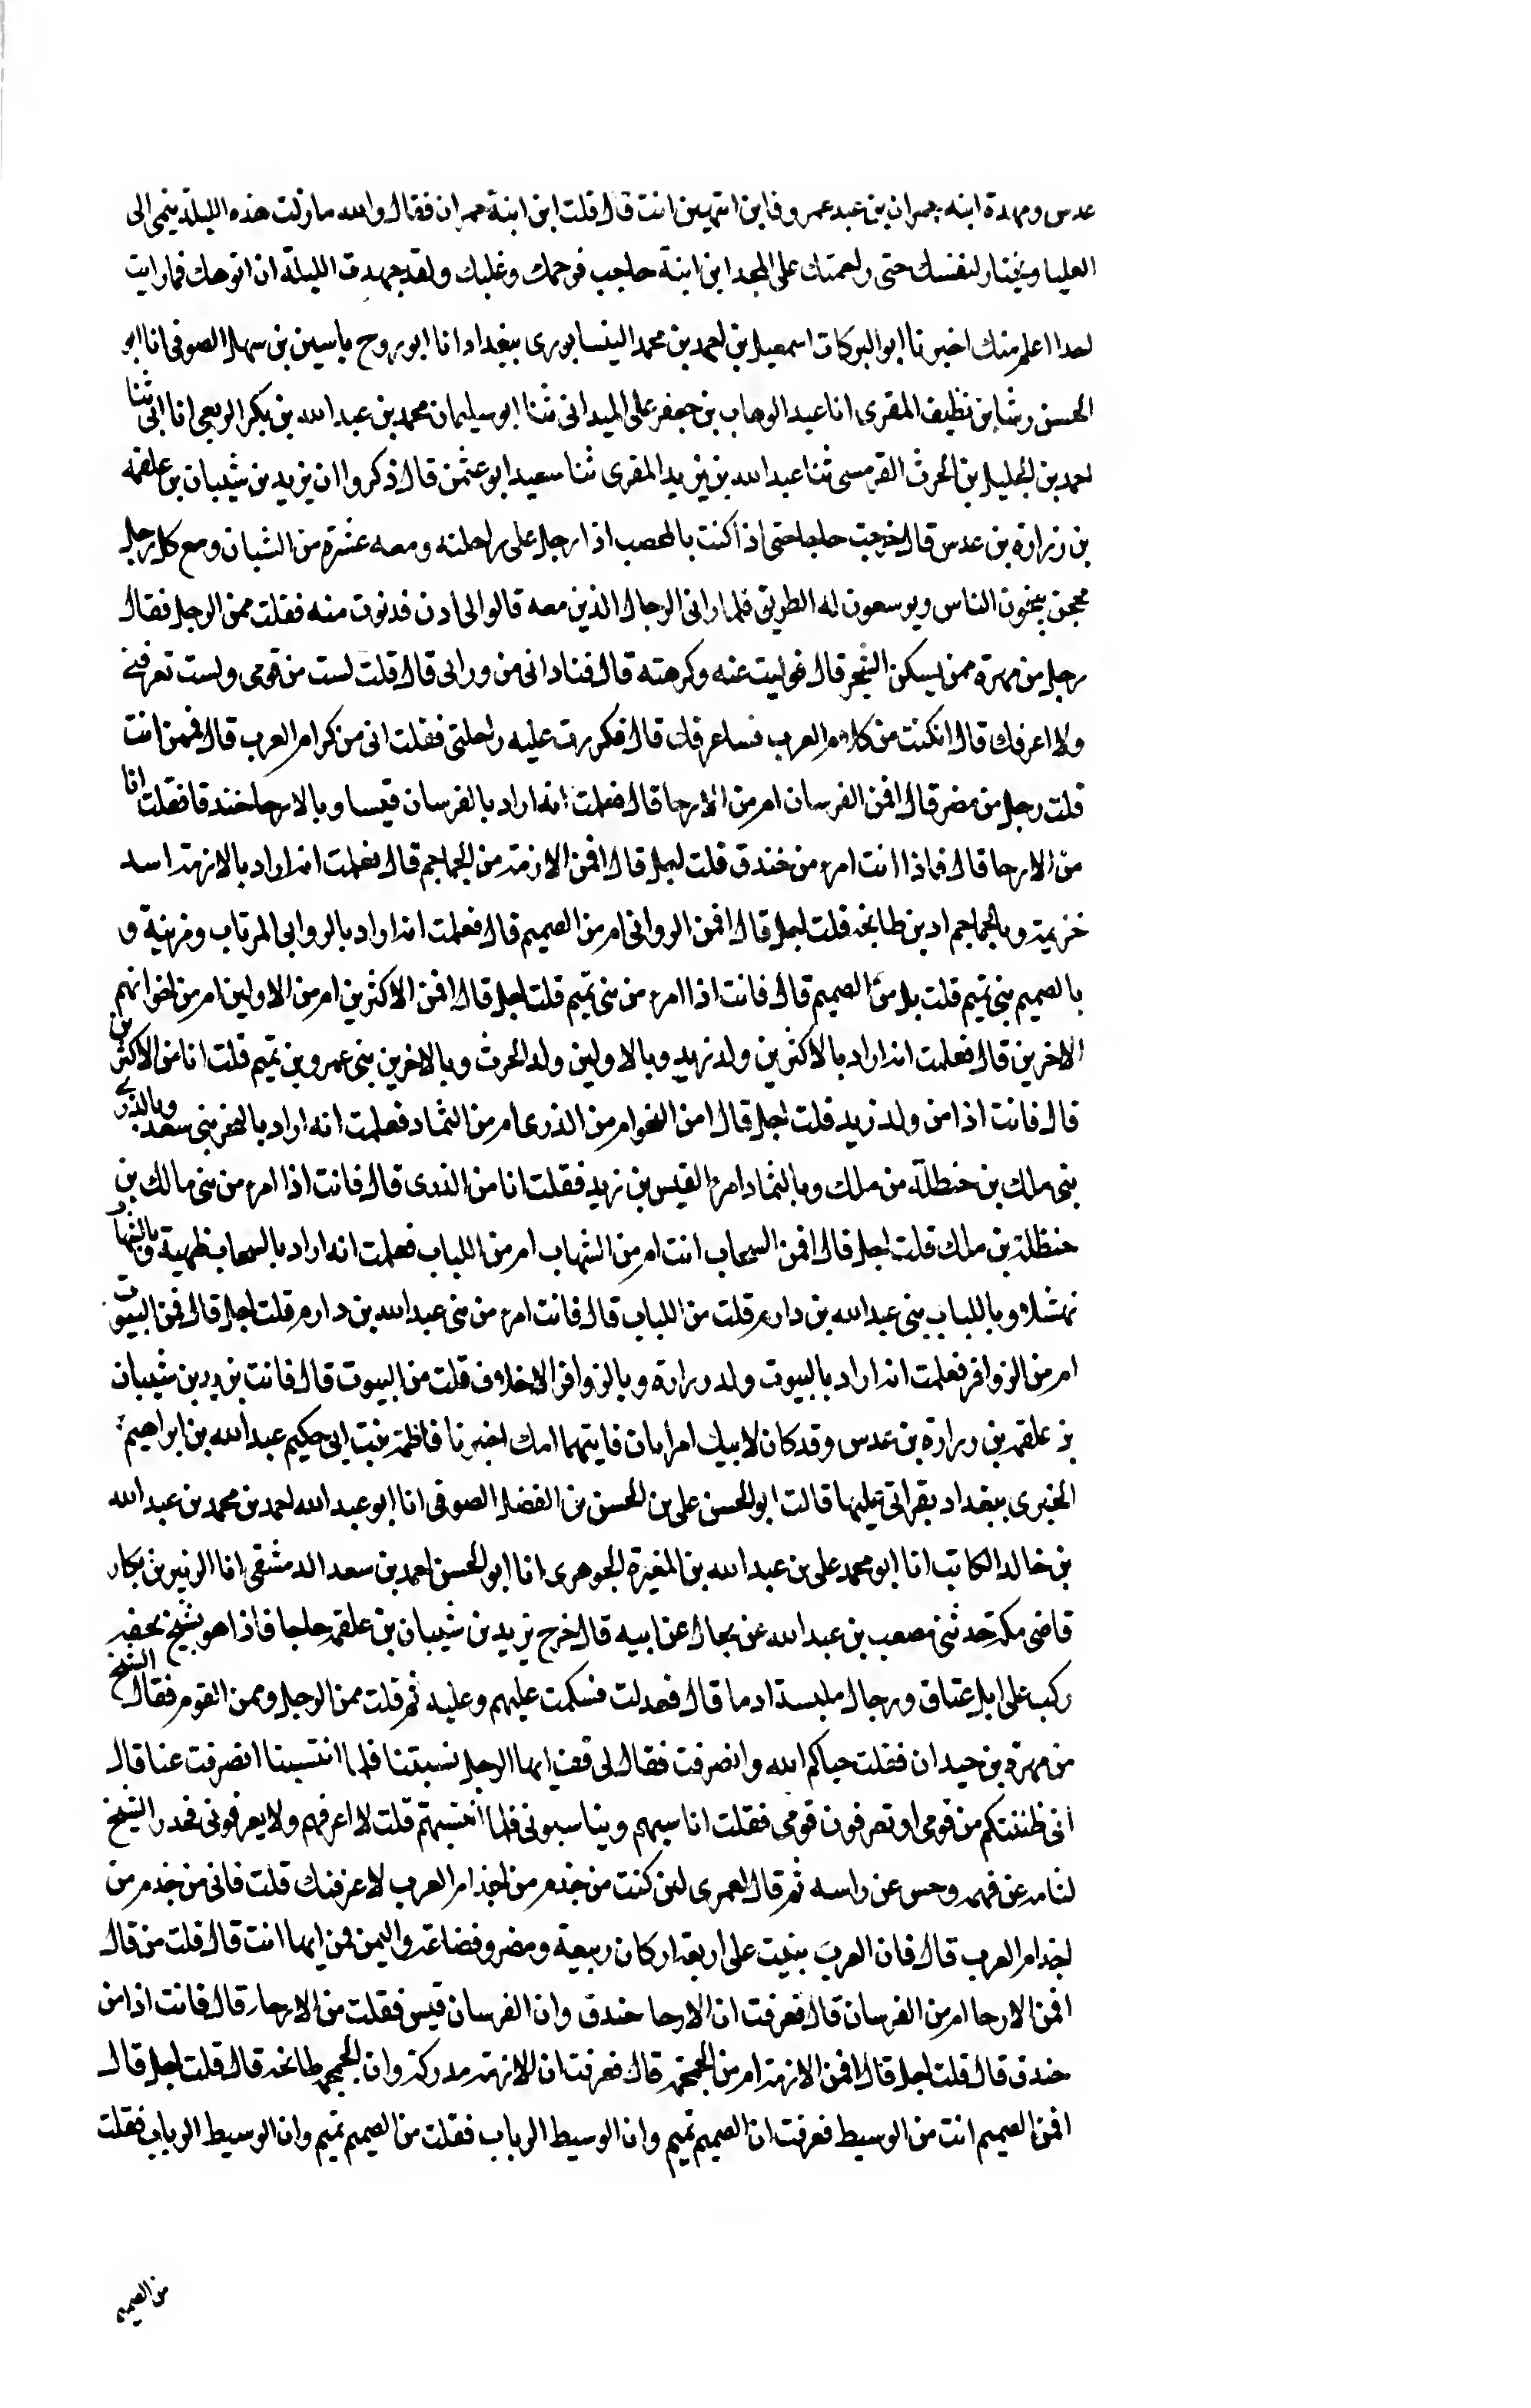 عدس ومهدة ابنه حمران بن عبد عمرو فابن ايتهين انت قال قلت ابن ابنة حمران فقال والله مازلت هذه الليلة ينمى الى
العليا ويختار لنفسك حتى زاحمتك على المجد ابن ابنة حاجب فرحمك وغلبك ولقد جهدت الليلة ان اتوهك فما رايت
احدا اعلم منك اخبرنا ابو البركات اسمعيل بن احمد بن محمد النيسابورى ببغداد انا ابو روح ياسين بن سهل الصوفى انا ابو
الحسن رشا بن نظيف المقرى انا عبد الوهاب بن جعفر على الميدانى ثنا ابو سليمان محمد بن عبد الله بن بكر الربعى انا ابى ثنا
احمد بن الخليل بن الحرث القرمسى ثنا عبد الله بن يزيد المقرى ثنا سعيد ابو عثمن قال ذكروا ان يزيد بن شيبان بن علقمه
بن زرارة بن عدس قال خرجت حاجا حتى اذا كنت بالمحصب اذا رجل على راحلته ومعه عشرة من الشبان ومع كل رجل
محجن ينحون الناس ويوسعون له الطريق فلما رانى الرجال الذين معه قالوا لى ادن فدنوت منه فقلت ممن الرجل فقال
رجل من مهرة ممن يسكن الشحر قال فوليت عنه وكرهته قال فنادانى من ورائى قال قلت لست من قومى ولست تعرفنى
ولا اعرفك قال ان كنت من كرام العرب فساعرفك قال فكررت عليه راحلتى فقلت انى من كرام العرب قال فممن انت
قلت رجل من مضر قال افمن الفرسان ام من الارحا قال فعلمت انه اراد بالفرسان قيسا وبالارحا خندقا فقلت انا
من الارحا قال فاذا انت امرء من خندق قلت اجل قال افمن الازمة من الجماجم قال فعلمت انه اراد بالازمة اسد
خزيمة وبالجماجم اد بن طابخه قلت اجل قال افمن الروانى ام من الصميم قال فعلمت انه اراد بالروابى الرباب ومزينة و
بالصميم بنى تميم قلت بل من الصميم قال فانت اذا امرء من بنى تميم قلت اجل قال افمن الاكثرين ام من الاولين ام من اخوانهم
الاخرين قال فعلمت انه اراد بالاكثرين ولد زيد وبالاولين ولد الحرث وبالاخرين بنى عمرو بن تميم قلت انا من الاكثرين
قال فانت اذا من ولد زيد قلت اجل قال امن البحور ام من الذرى ام من الثماد فعلمت انه اراد بالبحر بنى سعد وبالذرى
بنى ملك بن حنظلة من ملك وبالثماد امرء القيس بن زيد فقلت انا من الذرى قال فانت اذا امرء من بنى مالك بن
حنظلة بن ملك قلت اجل قال افمن السحاب انت ام من الشهاب ام من اللباب فعلمت انه اراد بالسحاب طهية وبالشهاب
نهشلا وباللباب بنى عبد الله بن دارم قلت من اللباب قال فانت امرء من بنى عبد الله بن دارم قلت اجل قال فمن البيوت
ام من الزوافر فعلمت انه اراد بالبيوت ولد زرارة وبالزوافر الاخلاف قلت من البيوت قال فانت يزيد بن شيبان
بن علقمه بن زرارة بن عدس وقد كان لابيك امراتان فايتهما امك اخبرنا فاطمة بنت ابى حكيم عبد الله بن ابراهيم
الخبرى ببغداد بقراتى عليها قالت ابو الحسن على بن الحسن بن الفضل الصوفى انا ابو عبد الله احمد بن محمد بن عبد الله
بن خالد الكاتب انا ابو محمد على بن عبد الله بن المغيرة الجوهرى انا ابو الحسن احمد بن سعد الدمشقى انا الزبير بن بكار
قاضى مكة حدثنى مصعب بن عبد الله عن رجال عن ابيه قال خرج يزيد بن شيبان بن علقمه حاجا فاذا هو بشيخ يحفه
ركب على ابل عتاق ورجال ملبسة ادما قال فعدلت فسلمت عليهم وعليه ثم قلت ممن الرجل وممن القوم فقال الشيخ
من مهرة بن حيدان فقلت حياكم الله وانصرفت فقال لى قف ايها الرجل نسبتنا فلما انتسبنا انصرفت عنا قال
انى ظننتكم من قومى او تعرفون قومى فقلت اناسبهم ويناسبونى فلما انتسبتم قلت لا اعرفهم ولا يعرفونى فحدر الشيخ
لثامه عن فمه وحسر عن راسه ثم قال لعمرى لئن كنت من جذم من اجذام العرب لاعرفنك قلت فانى من جذم من
اجذام العرب قال فان العرب بنيت على اربعة اركان ربيعة ومضر وقضاعة واليمن فمن ايها انت قال قلت من قال
افمن الارحا ام من الفرسان قال فعرفت ان الارحا خندق وان الفرسان قيس فقلت من الارحا قال فانت اذا من
خندق قال قلت اجل قال افمن الازمة ام من الجمجمة قال فعرفت ان الازمة مدركة وان الجمجمة طابخه قال قلت اجل قال
افمن الصميم انت من الوسيط فعرفت ان الصميم تميم وان الوسيط الرباب فقلت من الصميم تميم وان الوسيط الرباب فقلت
من الصميم